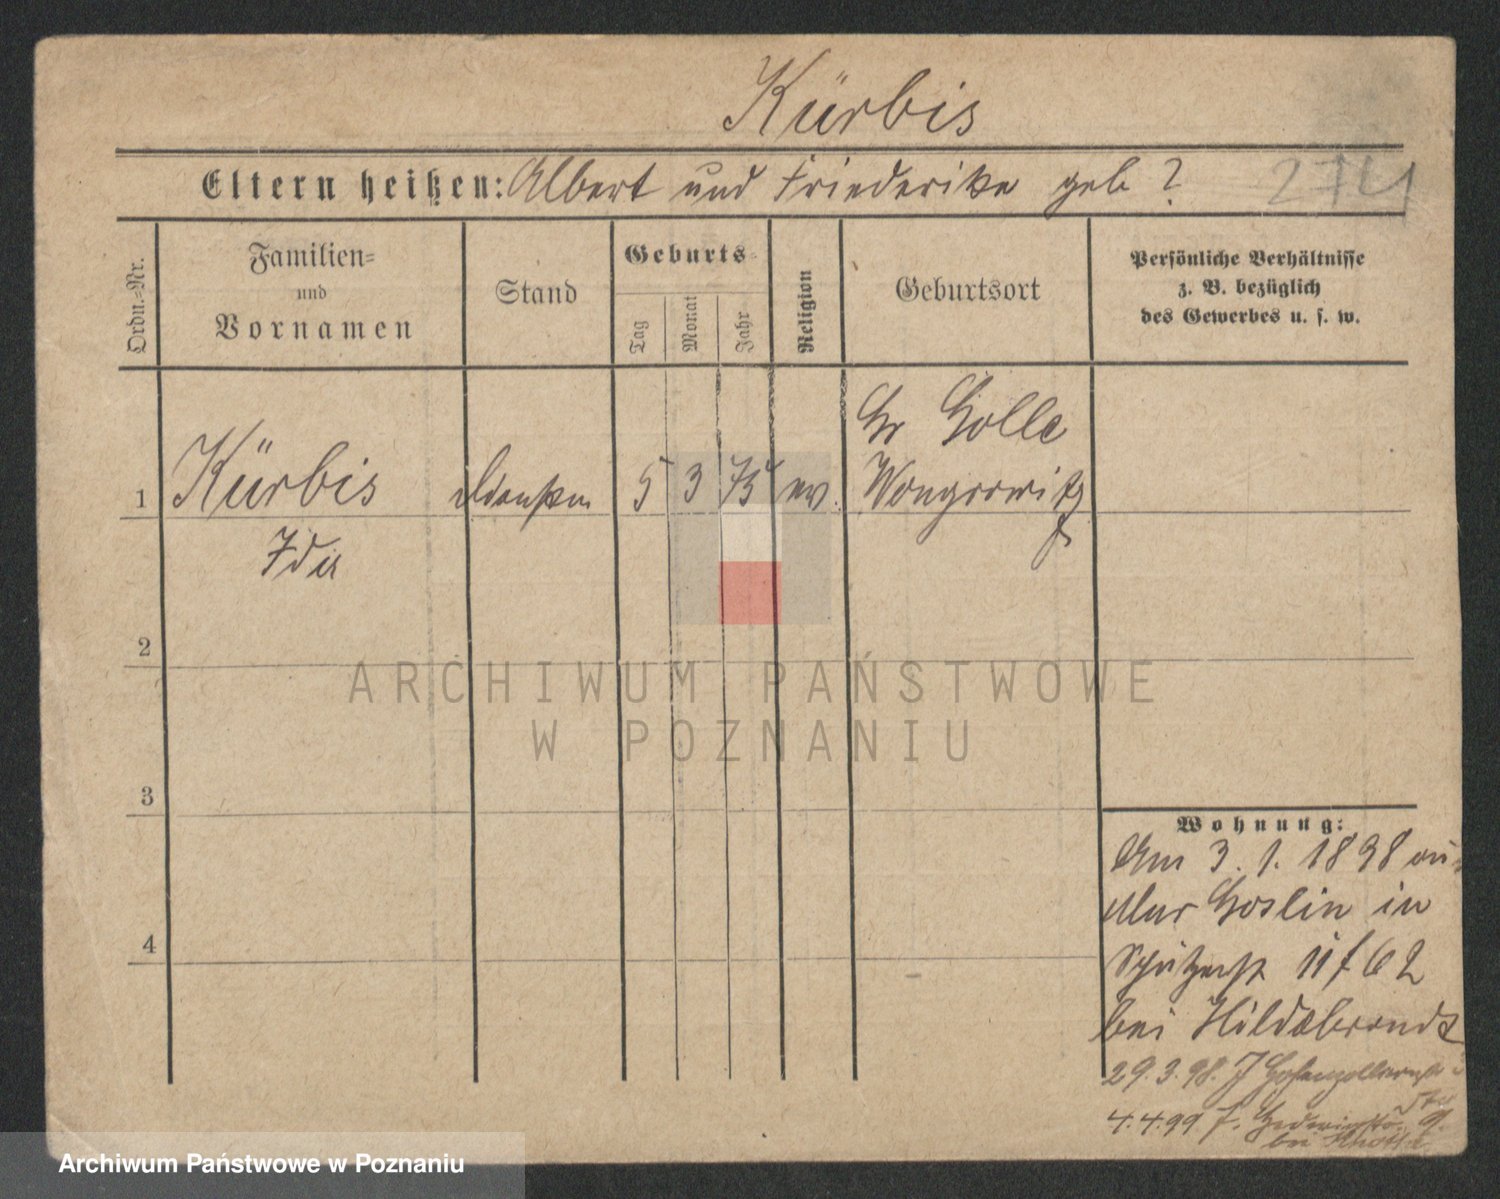 Kürbis
Eltern heißen: Albert und Friederike geb ?
274
Ordn.=Nr.
Familien=
und
Vornamen
Stand
Geburts=
Tag
Monat
Jahr
Religion
Geburtsort
Persönliche Verhältnisse
z. B. bezüglich
des Gewerbes u. s. w.
Gr Golle
1 Kürbis 5 3 75 ev. Wongrowitz
Ida
2
ARCHIWUM PAŃSTWOWE
W POZNANIU
3
Wohnung:
Am 3. 1. 1898 aus
Mur Goslin in
Schützenstr
bei Hildebrandt
29.3.98.
4.4.99
bei
4
Archiwum Państwowe w Poznaniu